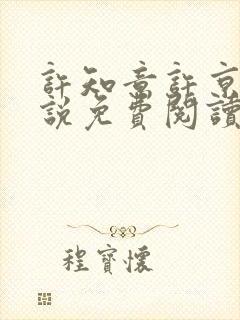 許知意許京
說免費閱讀
程寶懷